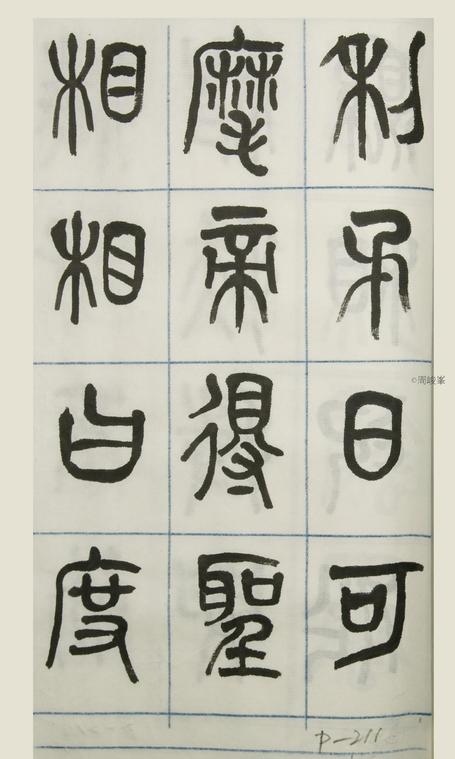 利日可
帝得聖
相相度
©周峻峯
P-211